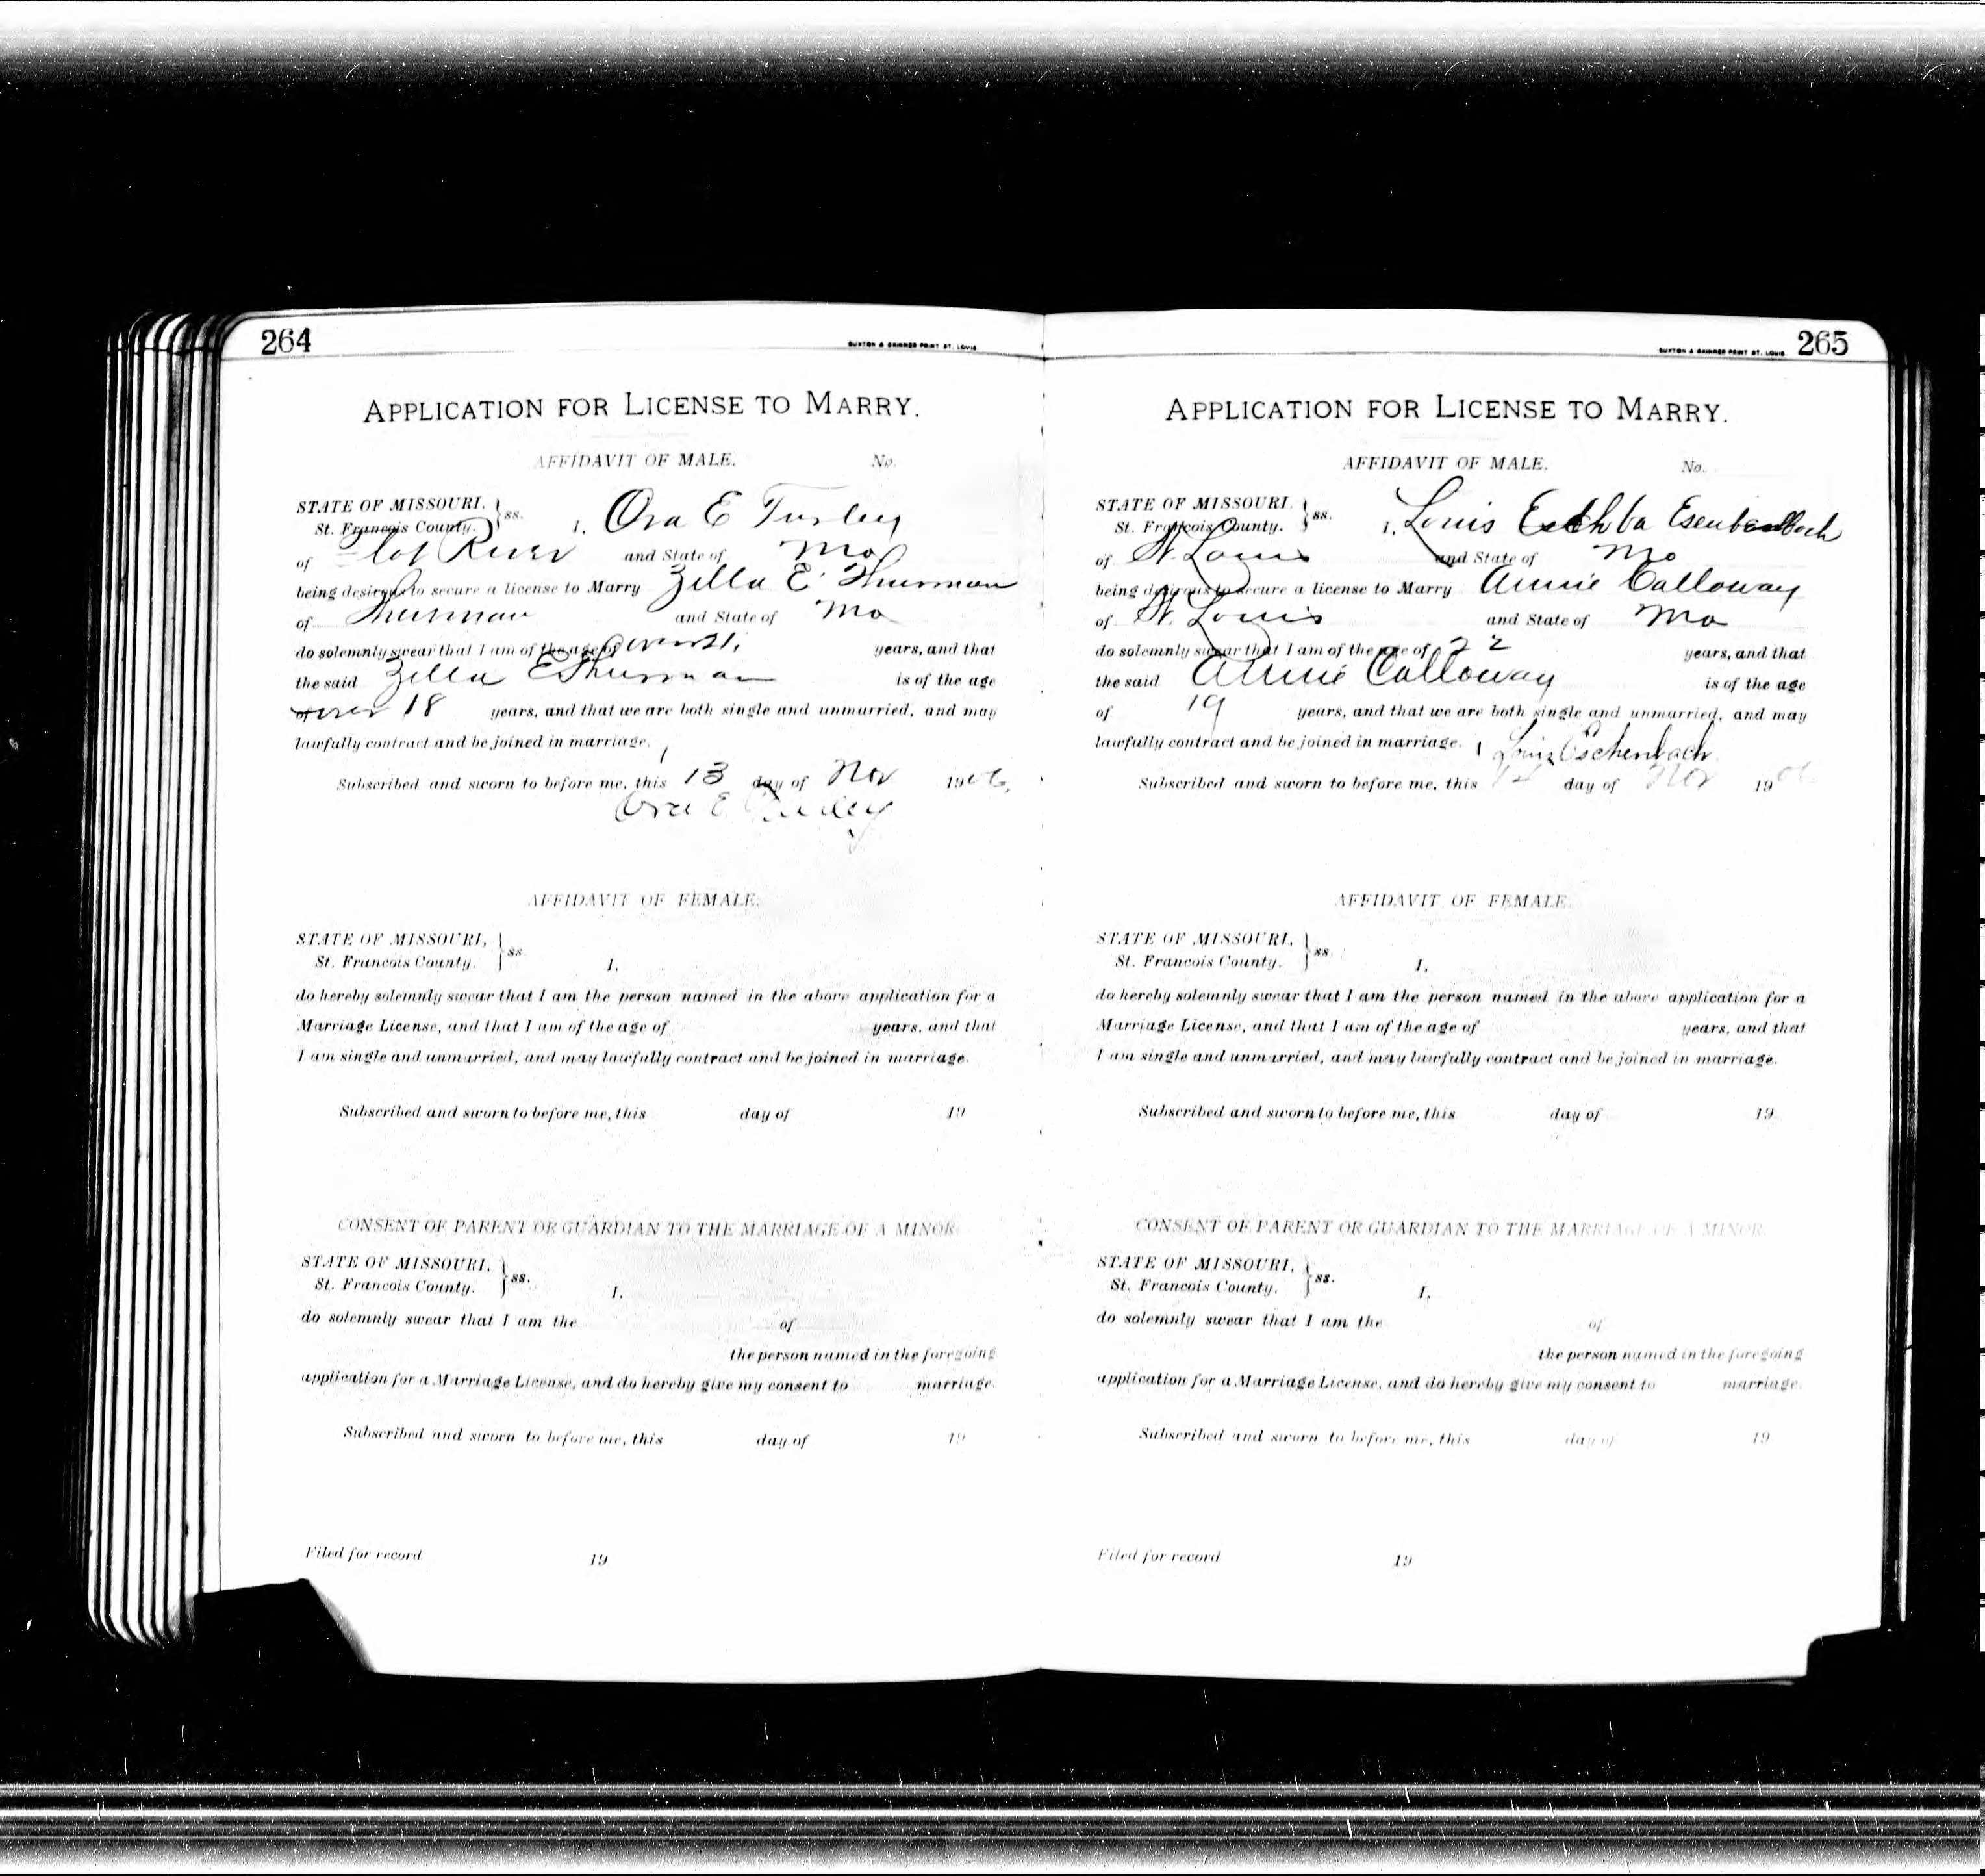 264
BUXTON & SKINNER PRINT ST. LOUIS
APPLICATION FOR LICENSE TO MARRY.
AFFIDAVIT OF MALE. No.
STATE OF MISSOURI,
St. Francois County. } ss. I, Ora E Turley
of Flat River and State of Mo
being desirous to secure a license to Marry Zella E. Thurman
of Thurman and State of Mo
do solemnly swear that I am of the age of over 21, years, and that
the said Zella E Thurman is of the age
of over 18 years, and that we are both single and unmarried, and may
lawfully contract and be joined in marriage.
Subscribed and sworn to before me, this 13 day of Nov 1906,
Ora E Turley
AFFIDAVIT OF FEMALE.
STATE OF MISSOURI,
St. Francois County. } ss. I,
do hereby solemnly swear that I am the person named in the above application for a
Marriage License, and that I am of the age of years, and that
I am single and unmarried, and may lawfully contract and be joined in marriage.
Subscribed and sworn to before me, this day of 19
CONSENT OF PARENT OR GUARDIAN TO THE MARRIAGE OF A MINOR.
STATE OF MISSOURI,
St. Francois County. } ss. I,
do solemnly swear that I am the of
the person named in the foregoing
application for a Marriage License, and do hereby give my consent to marriage.
Subscribed and sworn to before me, this day of 19
Filed for record 19
265
BUXTON & SKINNER PRINT ST. LOUIS
APPLICATION FOR LICENSE TO MARRY.
AFFIDAVIT OF MALE. No.
STATE OF MISSOURI,
St. Francois County. } ss. I, Louis
of St. Louis and State of Mo
being desirous to secure a license to Marry Annie Calloway
of St. Louis and State of Mo
do solemnly swear that I am of the age of 22 years, and that
the said Annie Calloway is of the age
of 19 years, and that we are both single and unmarried, and may
lawfully contract and be joined in marriage. Louis Eschenbach
Subscribed and sworn to before me, this 14 day of Nov 1906
AFFIDAVIT OF FEMALE.
STATE OF MISSOURI,
St. Francois County. } ss. I,
do hereby solemnly swear that I am the person named in the above application for a
Marriage License, and that I am of the age of years, and that
I am single and unmarried, and may lawfully contract and be joined in marriage.
Subscribed and sworn to before me, this day of 19
CONSENT OF PARENT OR GUARDIAN TO THE MARRIAGE OF A MINOR.
STATE OF MISSOURI,
St. Francois County. } ss. I,
do solemnly swear that I am the of
the person named in the foregoing
application for a Marriage License, and do hereby give my consent to marriage.
Subscribed and sworn to before me, this day of 19
Filed for record 19